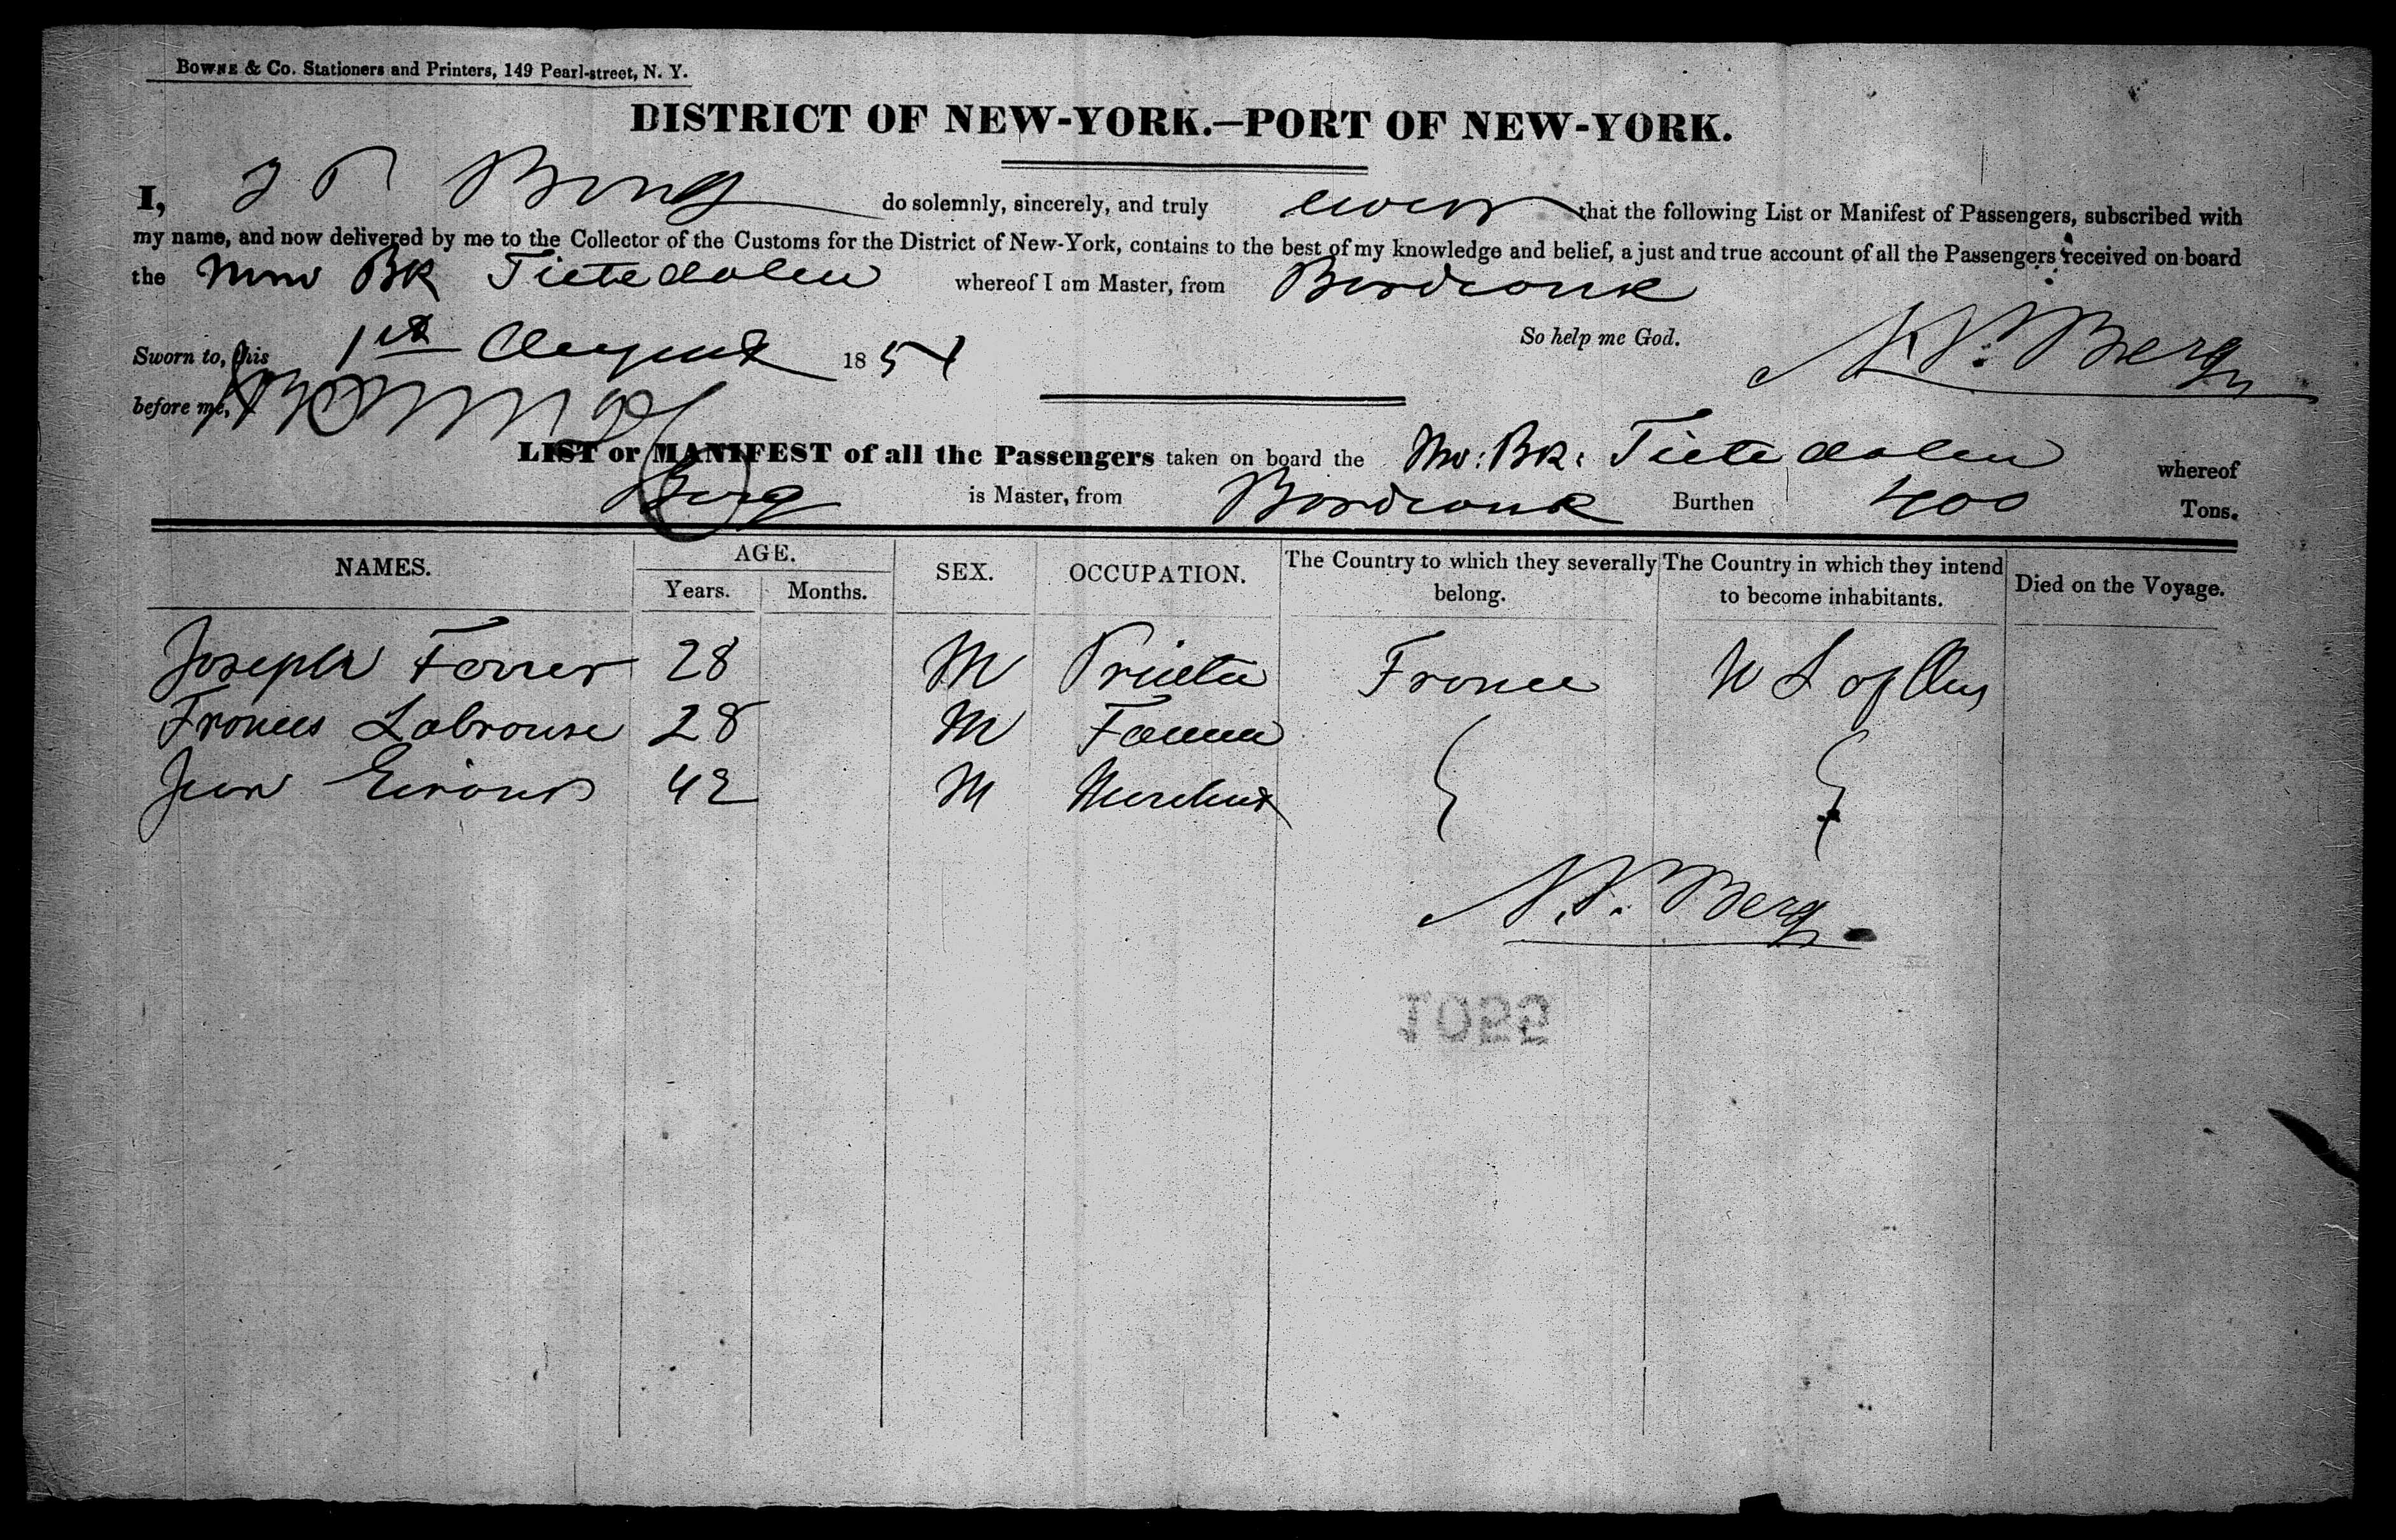 BOWNE & CO. Stationers and Printers, 149 Pearl-street, N. Y.
DISTRICT OF NEW-YORK.—PORT OF NEW-YORK.
I, do solemnly, sincerely, and truly swear that the following List or Manifest of Passengers, subscribed with
my name, and now delivered by me to the Collector of the Customs for the District of New-York, contains to the best of my knowledge and belief, a just and true account of all the Passengers received on board
the Bk whereof I am Master, from
So help me God.
Sworn to, this 1st August 1854
before me,
N. Berg
LIST or MANIFEST of all the Passengers taken on board the Bk. whereof
Berg is Master, from Burthen 400 Tons.
NAMES. AGE. SEX. OCCUPATION. The Country to which they severally belong. The Country in which they intend to become inhabitants. Died on the Voyage.
Years. Months.
Joseph 28 M France
Frances Labrouse 28 M Farmer
Jean 42 M Merchant
Berg
1055